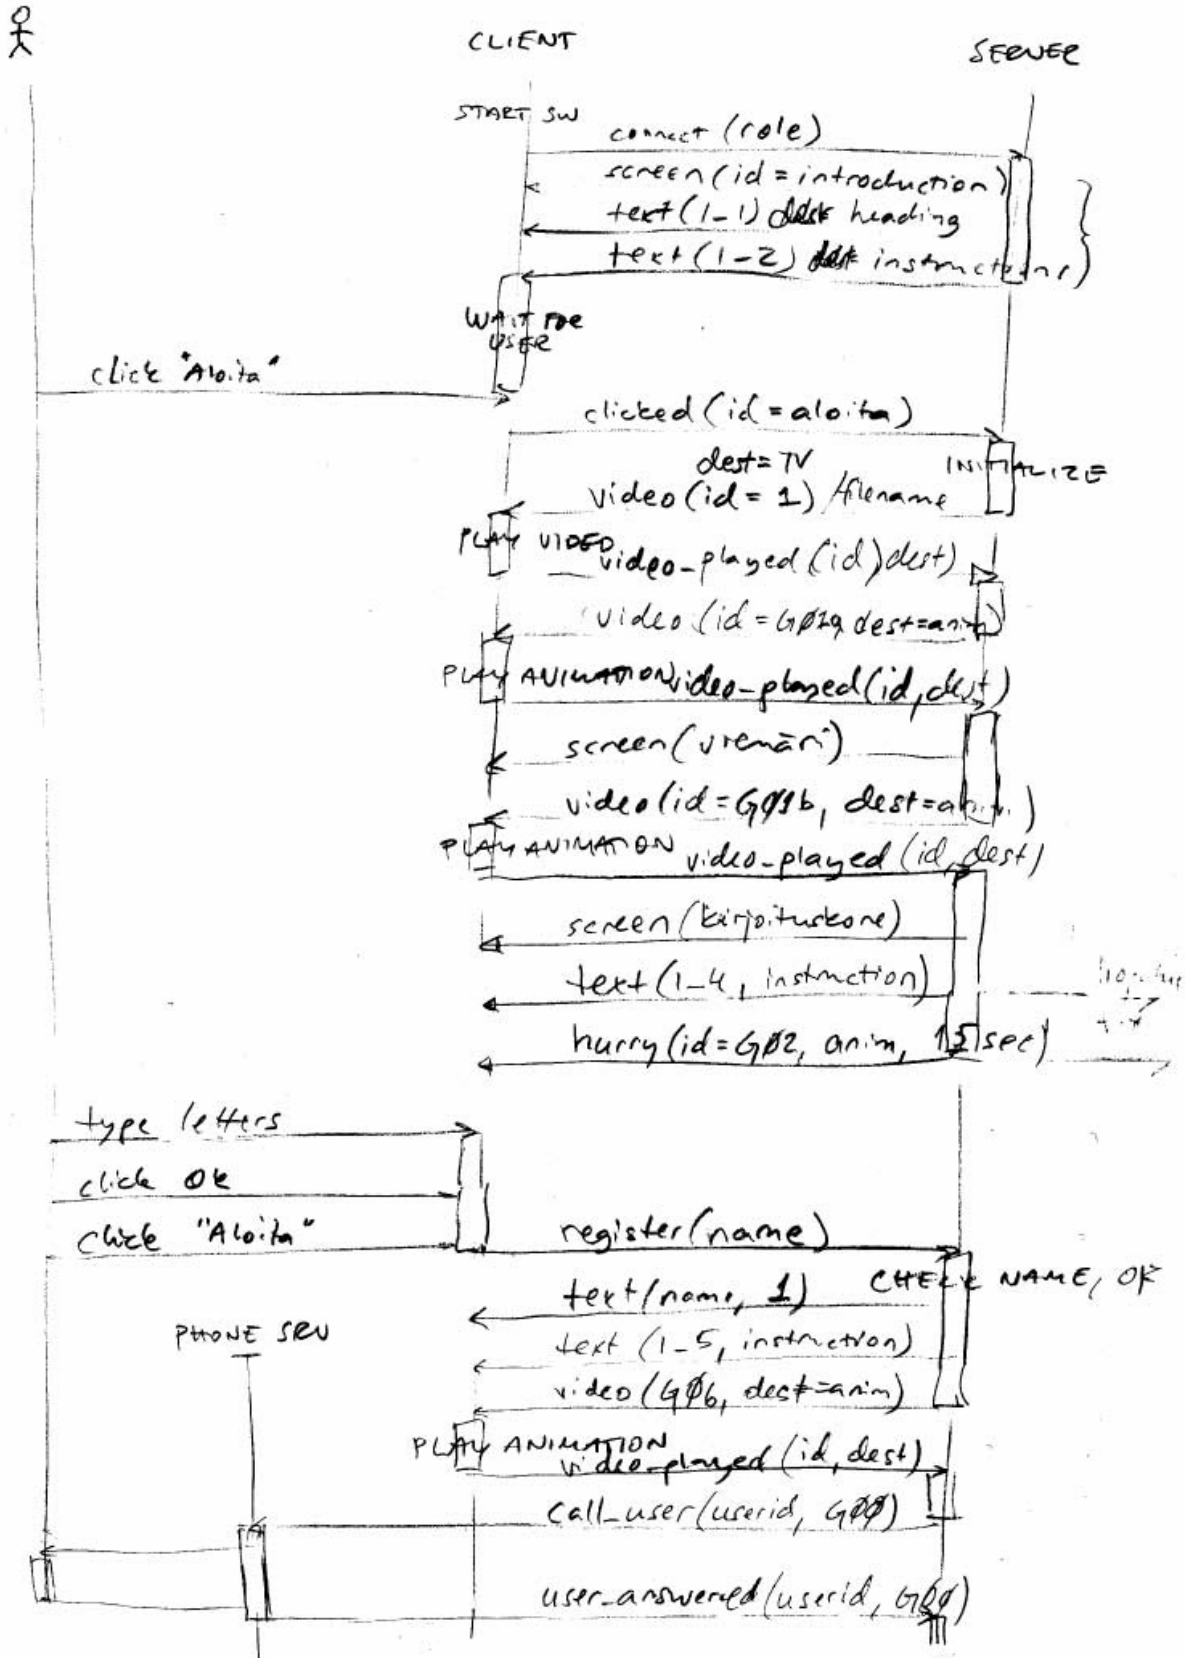 CLIENT
SERVER
START SW
connect (role)
screen (id = introduction)
text (1-1) heading
text (1-2) instructions)
WAIT FOR
USER
click "Aloita"
clicked (id = aloita)
dest = TV
INITIALIZE
video (id = 1) /filename
PLAY VIDEO
video-played (id) dest)
video (id = GØ1a, dest=anim)
PLAY ANIMATION
video-played (id, dest)
screen (vremări)
video (id = GØ1b, dest=anim.)
PLAY ANIMATION
video-played (id, dest)
screen (kirjoituskone)
text (1-4, instruction)
hurry (id = GØ2, anim, 15 sec)
type letters
click Ok
click "Aloita"
register (name)
CHECK NAME, OK
text (name, 1)
PHONE SRV
text (1-5, instruction)
video (GØ6, dest=anim)
PLAY ANIMATION
video-played (id, dest)
call_user (userid, GØØ)
user_answered (userid, GØØ)